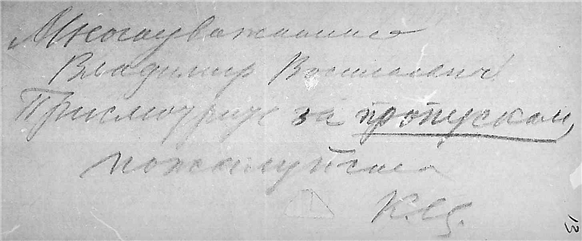 Многоуважаемый
Владимир Васильевич!
Присмотрите за пропуском,
пожалуйста
К.Ц.
13